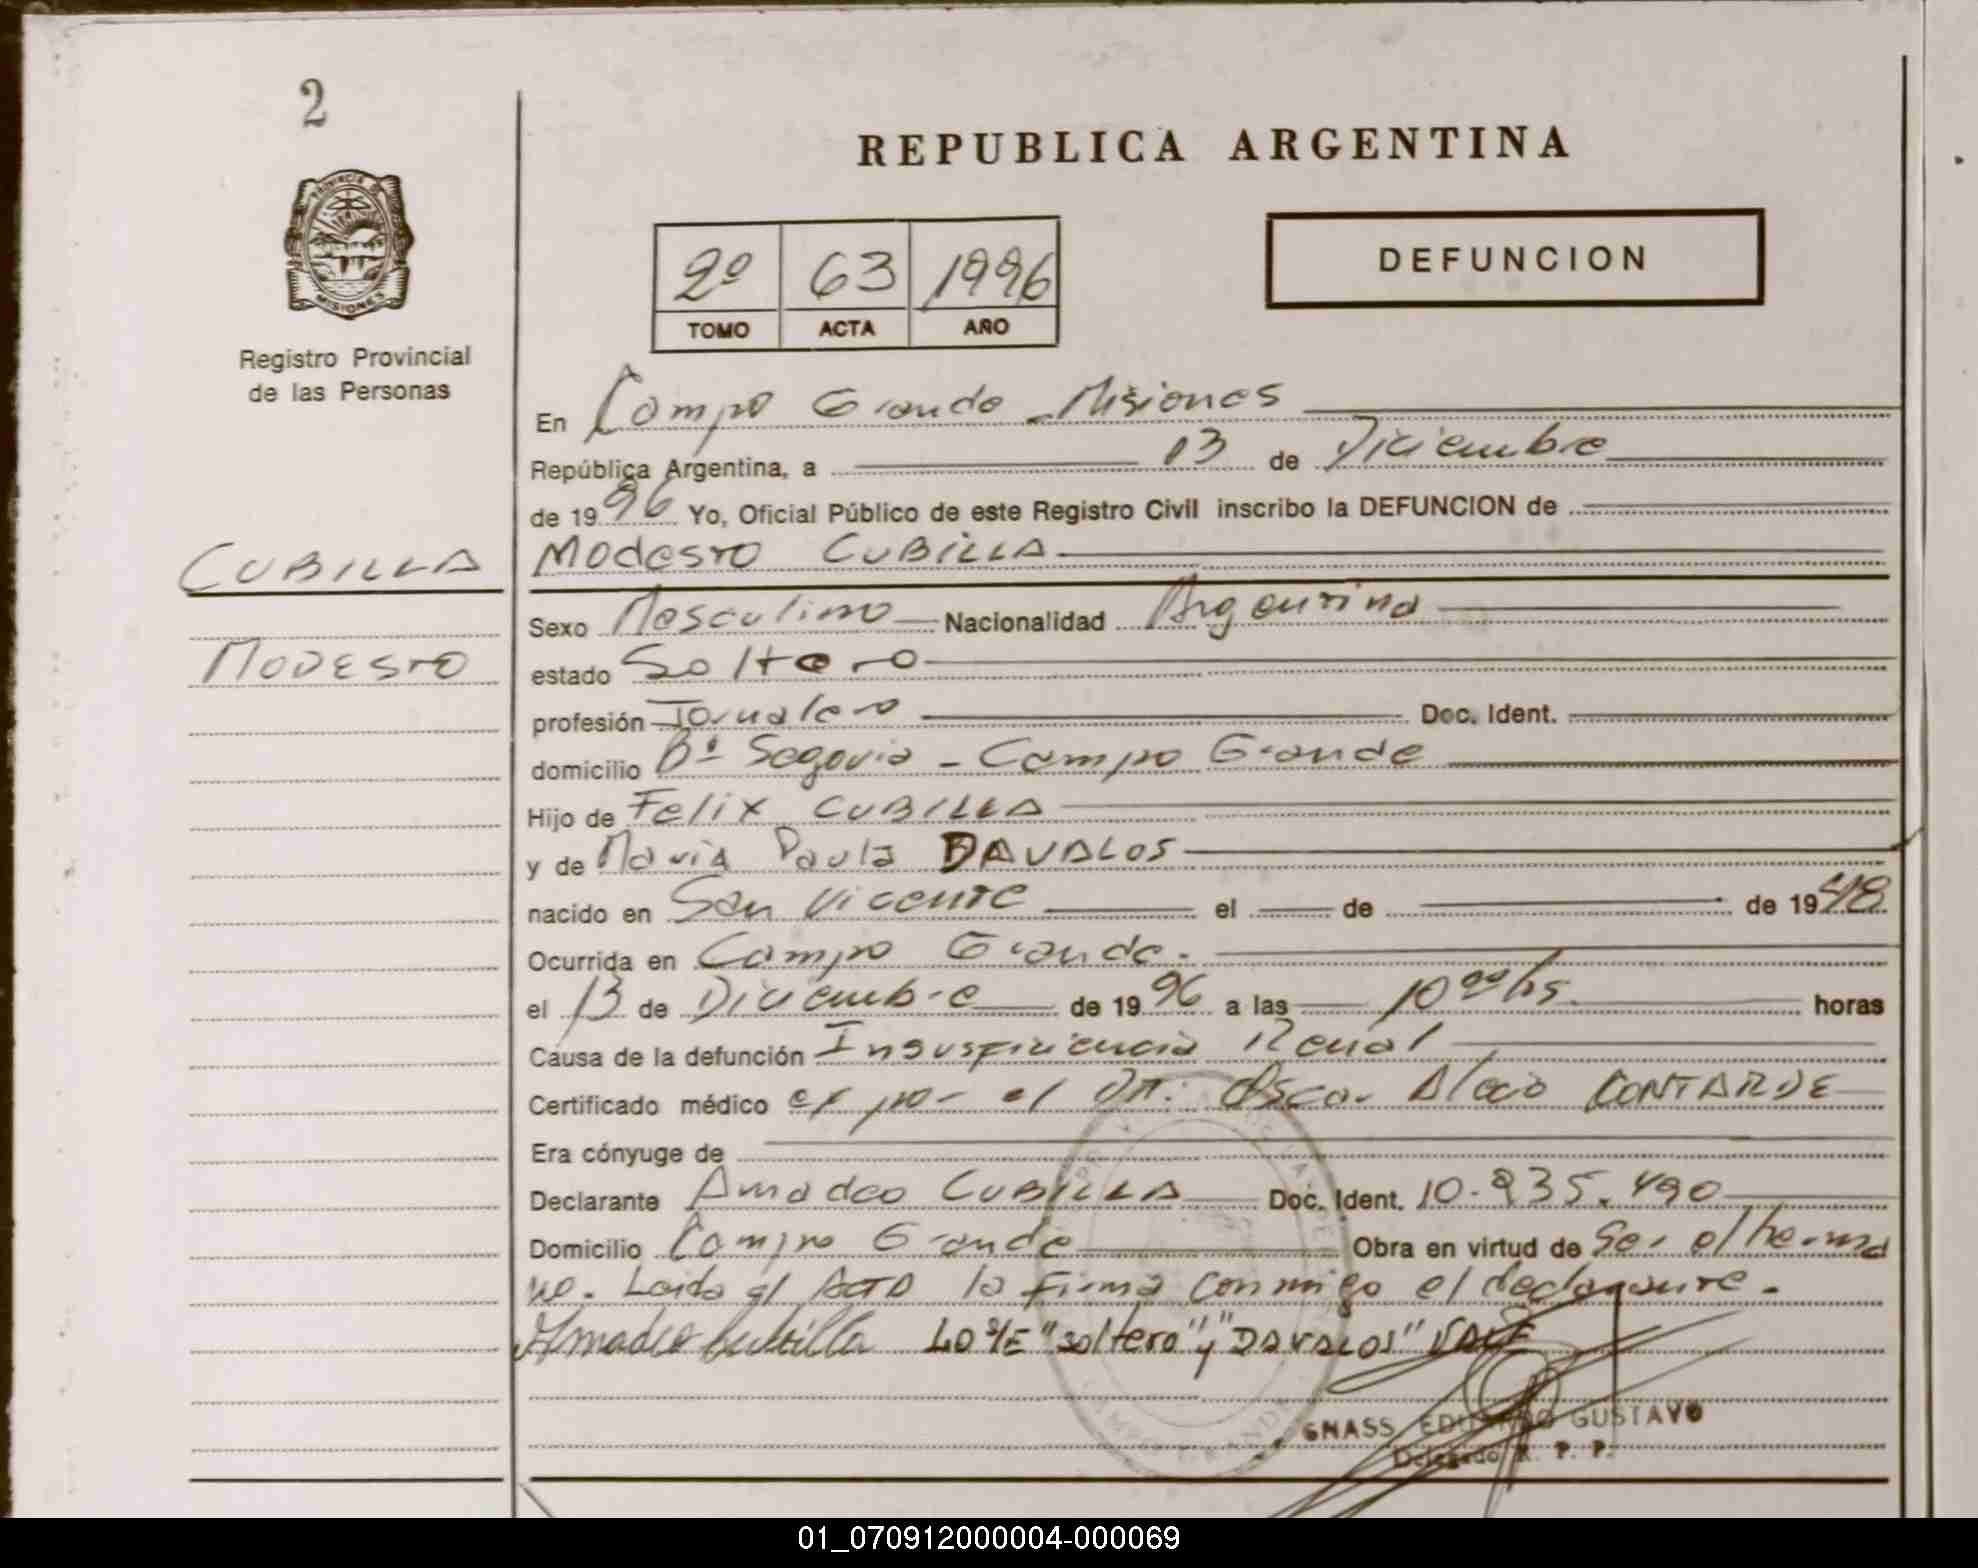 2
REPUBLICA ARGENTINA
PROVINCIA DE
MISIONES
Registro Provincial
de las Personas
2º 63 1996
TOMO ACTA AÑO
DEFUNCION
En Campo Grande - Misiones
República Argentina, a 13 de Diciembre
de 1996 Yo, Oficial Público de este Registro Civil inscribo la DEFUNCION de
CUBILLA
Modesto CUBILLA
Sexo Masculino Nacionalidad Argentina
MODESTO
estado Soltero
profesión Jornalero Doc. Ident.
domicilio Bº Segovia - Campo Grande
Hijo de Felix CUBILLA
y de Maria Paula DAVALOS
nacido en San Vicente el de de 1948
Ocurrida en Campo Grande.
el 13 de Diciembre de 1996 a las 10 00 hs horas
Causa de la defunción Insusficiencia Renal
Certificado médico ex por el DR: Oscar Alecio CONTARDE
Era cónyuge de
Declarante Amadeo CUBILLA Doc. Ident. 10.835.490
Domicilio Campo Grande Obra en virtud de Ser el herma
no. Leida el Acta la firma conmigo el declarante.
Amadeo Cubilla Lo s/E "soltero" y "DAVALOS" VALE
GNASS EDUARDO GUSTAVO
Delegado R. P. P.
01_070912000004-000069